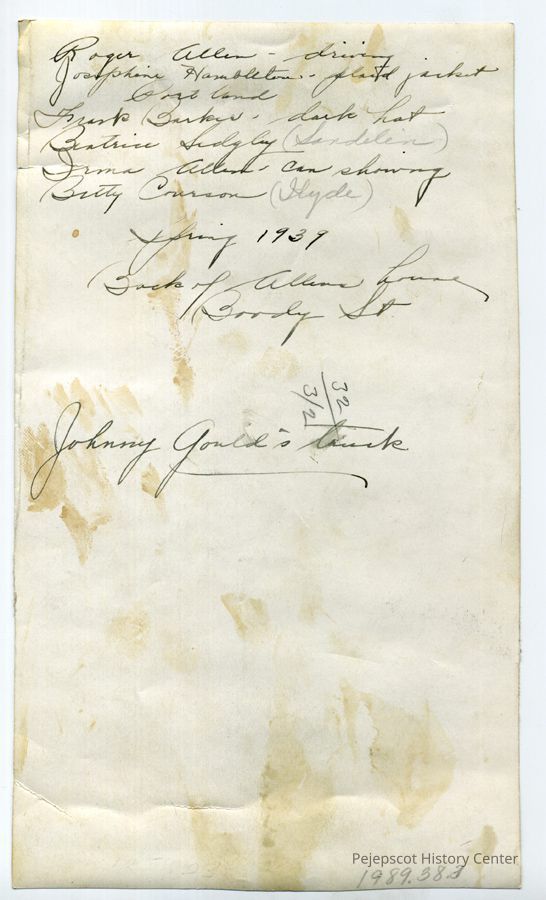 Roger Allen - driving
Josephine Hambleton - plaid jacket
Portland
Frank Barker - dark hat
Beatrice Sedgley (Sandelin)
Irma Allen - can showing
Betty Courson (Hyde)
Spring 1939
Back of Allens house
Boody St
32
3/2
Johnny Gould's truck
Pejepscot History Center
1989.38.3